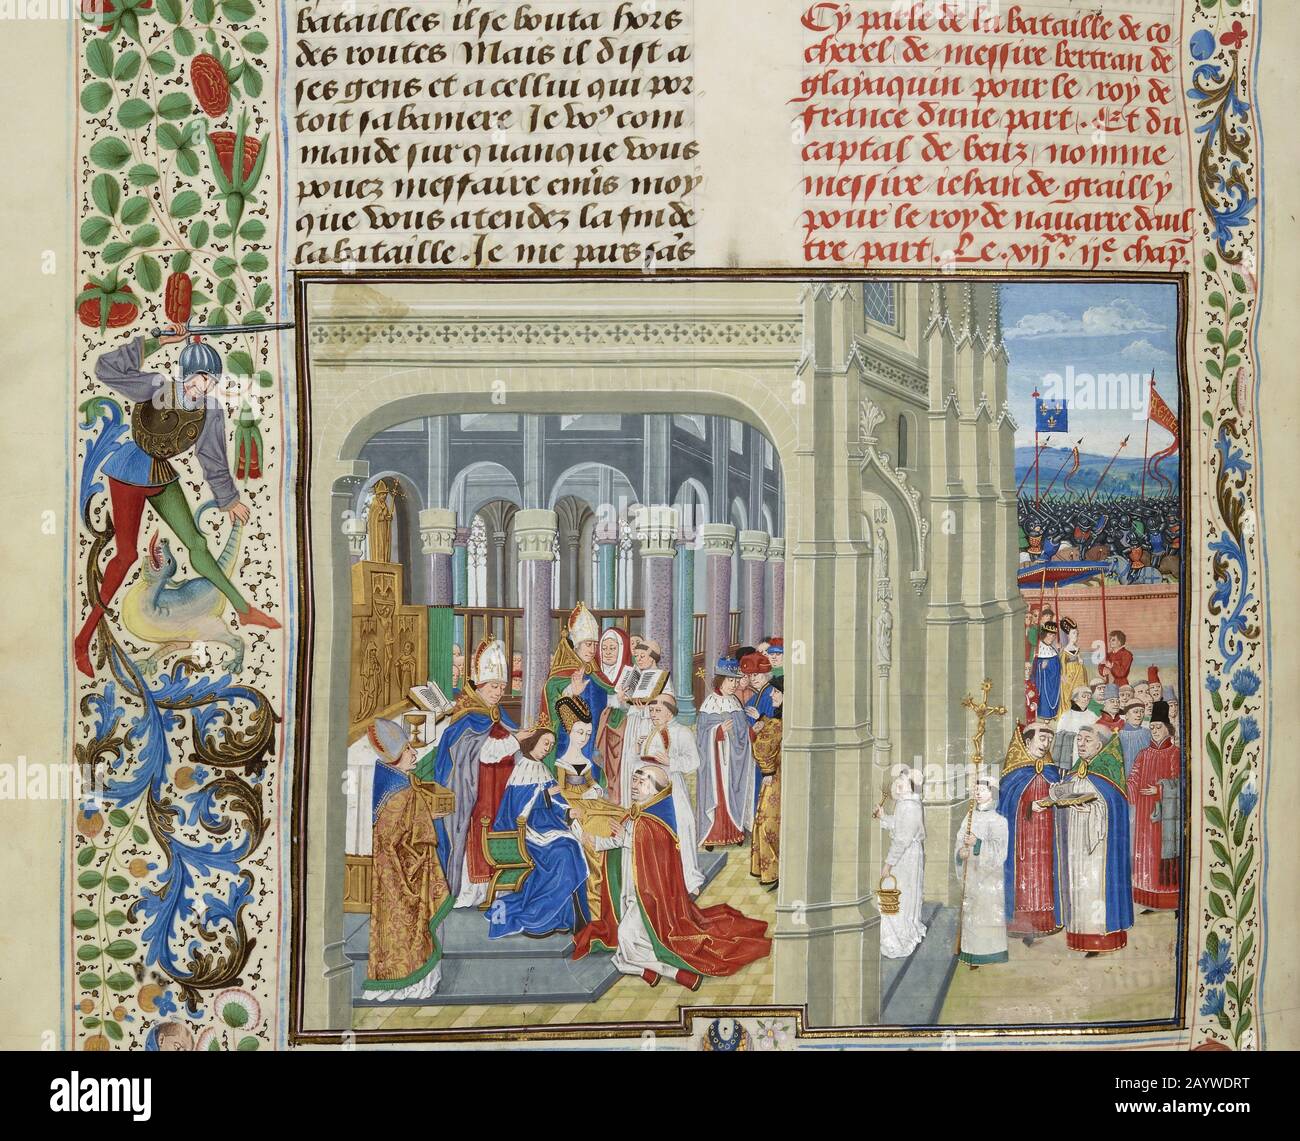 batailles il se bouta hors
des routes Mais il dist a
ses gens et a cellui qui por
toit sa baniere Je vo⁹ com
mande sur quanque vous
pouez mesfaire enũs moy
que vous atendez la fin de
la bataille. Je me pars zãs
Cy parle de la bataille de co
cherel de messire bertran de
glayaquin pour le roy de
france dune part. Et du
captal de beuz nomme
messire iehan de grailly
pour le roy de nauarre daul
tre part. Le .vii ii^e chap
a alamy stock photo
alamy
Image ID: 2AYWDRT
www.alamy.com